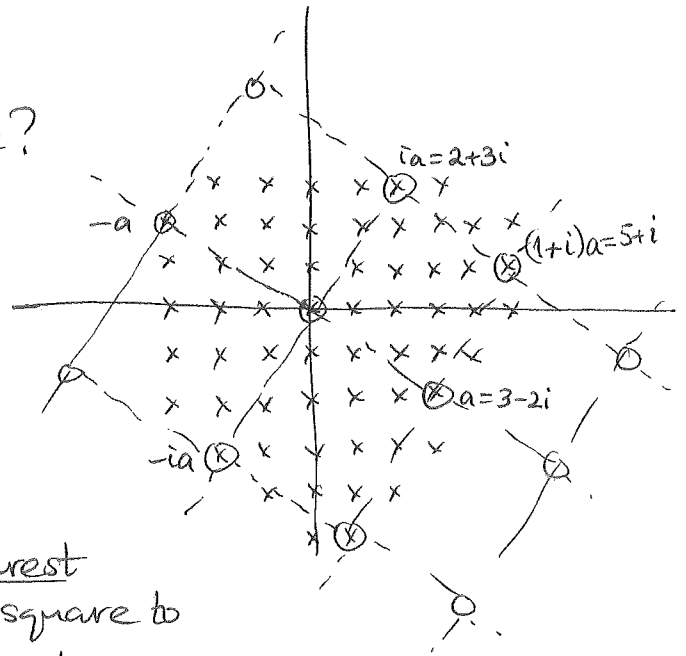 ?
ia=2+3i
-a
(1+i)a=5+i
a=3-2i
-ia
square to